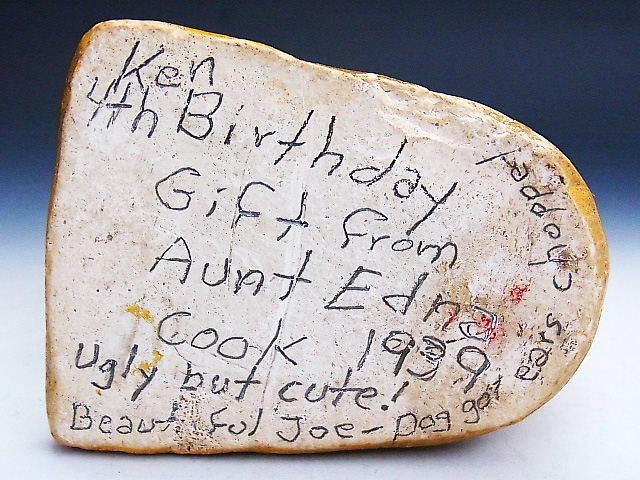 Ken
4th Birthday
Gift from
Aunt Edna
Cook 1939
Ugly but cute!
Beautiful Joe - Dog got
ears chopped